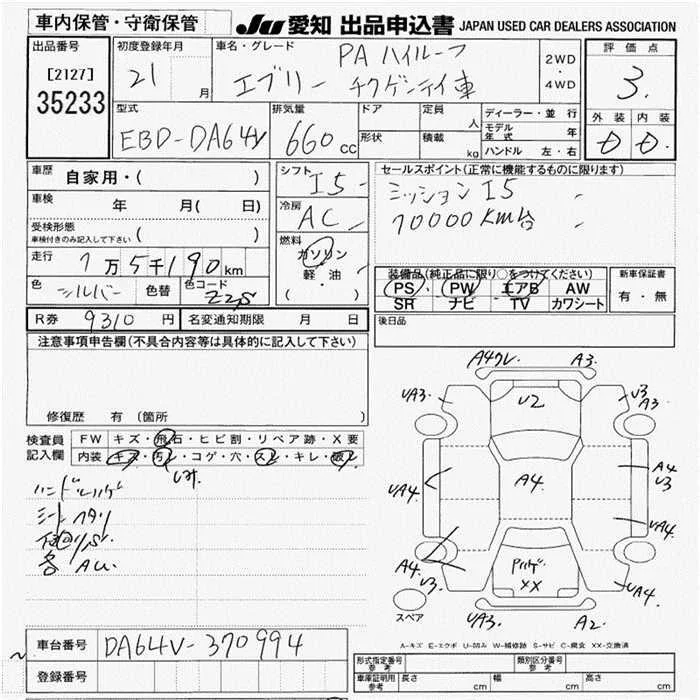 車内保管・守衛保管
JU 愛知 出品申込書 JAPAN USED CAR DEALERS ASSOCIATION
出品番号
[2127]
35233
初度登録年月
21 月
車名・グレード
PA ハイルーフ
エブリー チクゲンテイ車
2WD
・
4WD
評価点
3.
外装 内装
D D
型式
EBD-DA64V
排気量
660 cc
ドア
形状
定員 人
積載 kg
ディーラー・並行
モデル年式 年
ハンドル 左・右
車歴
自家用・( )
車検 年 月( 日)
受検形態
車検付きのみ記入して下さい ( )
走行
7万5千190km
色 シルバー 色替 色コード Z2S
シフト
I5
冷房
AC
燃料
ガソリン
軽・油
( )
セールスポイント(正常に機能するものに限ります)
ミッションI5
70000KM台
装備品(純正品に限り○をつけてください)
PS PW エアB AW
SR ナビ TV カワシート
新車保証書
有・無
R券 9310 円 名変通知期限 月 日
後日品
注意事項申告欄(不具合内容等は具体的に記入して下さい)
修復歴 有 (箇所 )
検査員記入欄
FW キズ・飛石・ヒビ割・リペア跡・X要
内装 キズ・汚レ・コゲ・穴・スレ・キレ・破レ
シミ
ハンドルハゲ
シートヘタリ
各AU.
A4クレ. A3
UA3 U2 U3 A3
UA4 A4 A4 U3
UA4
A4. U3 Pハゲ XX UA4
UA3 A2
スペア
A-キズ E-エクボ U-凹み W-補修跡 S-サビ C-腐食 XX-交換済
車台番号 DA64V-370994
登録番号
形式指定番号 参考
類別区分番号 参考
車庫証明用 参考 長さ cm 幅 cm 高さ cm